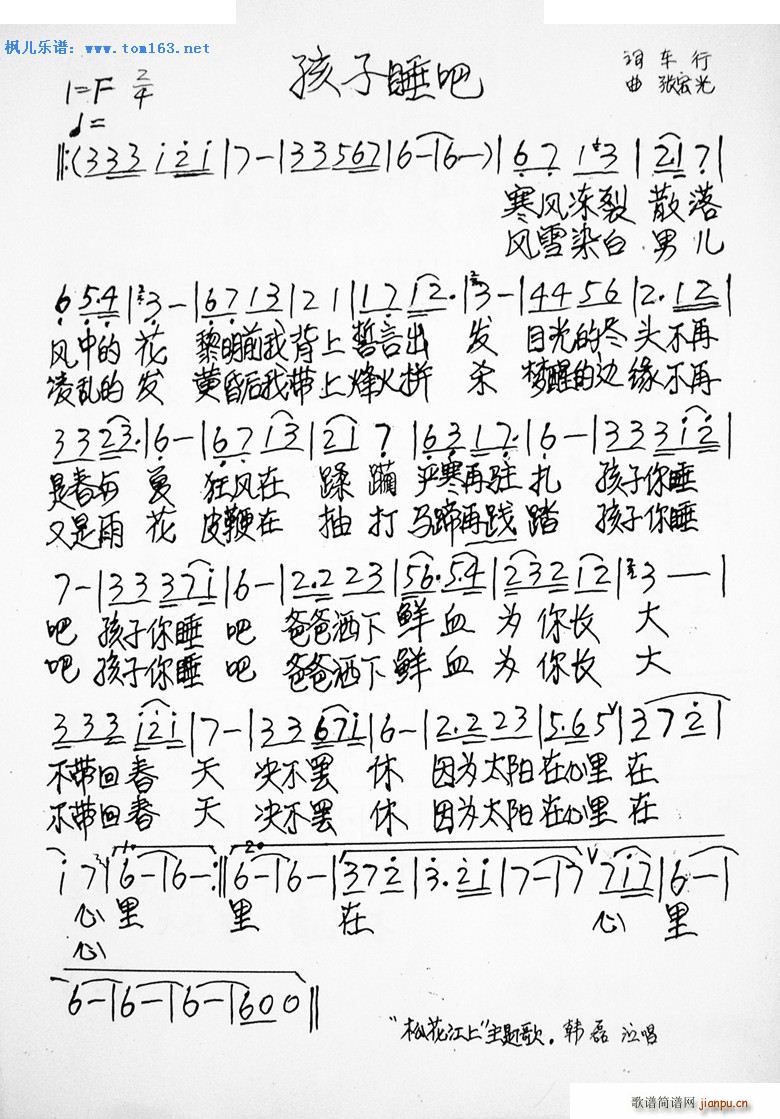 枫儿乐谱：www.tom163.net
孩子睡吧
词 车 行
曲 张宏光
1=F 2/4
♩=
‖:(3 3 3 i 2 i | 7 - | 3 3 5 6 7 | 6 - | 6 - ) | 6 7 1 3 | 2 1 7 |
寒风冻裂 散落
风雪染白 男儿
6 5·4 | 3 - | 6 7 1 3 | 2 1 | 1 7 1 2· | 3 - | 4 4 5 6 | 2· 1 2 |
风中的 花 黎明前我 背上 誓言出 发 目光的尽头不再
凌乱的 发 黄昏后我带上烽火拼 杀 梦醒的边缘不再
3 3 2 3· | 6 - | 6 7 1 3 | 2 1 7 | 6 3 1 7· | 6 - | 3 3 3 i 2 |
是春与 夏 狂风在 蹂 躏 严寒再驻 扎 孩子你睡
又是雨 花 皮鞭在 抽 打 马蹄再践 踏 孩子你睡
7 - | 3 3 3 7 i | 6 - | 2·2 2 3 | 5 6·5·4 | 2 3 2 1 2 | 3 - - |
吧 孩子你睡 吧 爸爸洒下 鲜 血 为 你长 大
吧 孩子你睡 吧 爸爸洒下 鲜 血 为 你长 大
3 3 3 i 2 i | 7 - | 3 3 6 7 i | 6 - | 2·2 2 3 | 5·6 5 | 3 7 2 |
不带回春 天 决不罢 休 因为太阳在心里 在
不带回春 天 决不罢 休 因为太阳在心里 在
i 7 | 1. 6 - | 6 - :‖ 2. 6 - | 6 - | 3 7 2 | 3· 2 i | 7 - | 7 7 i 7 | 6 - |
心 里 里 在 心 里
心
6 - | 6 - | 6 - | 6 0 0 ‖
"松花江上"主题歌. 韩磊 演唱
歌谱简谱网
jianpu.cn